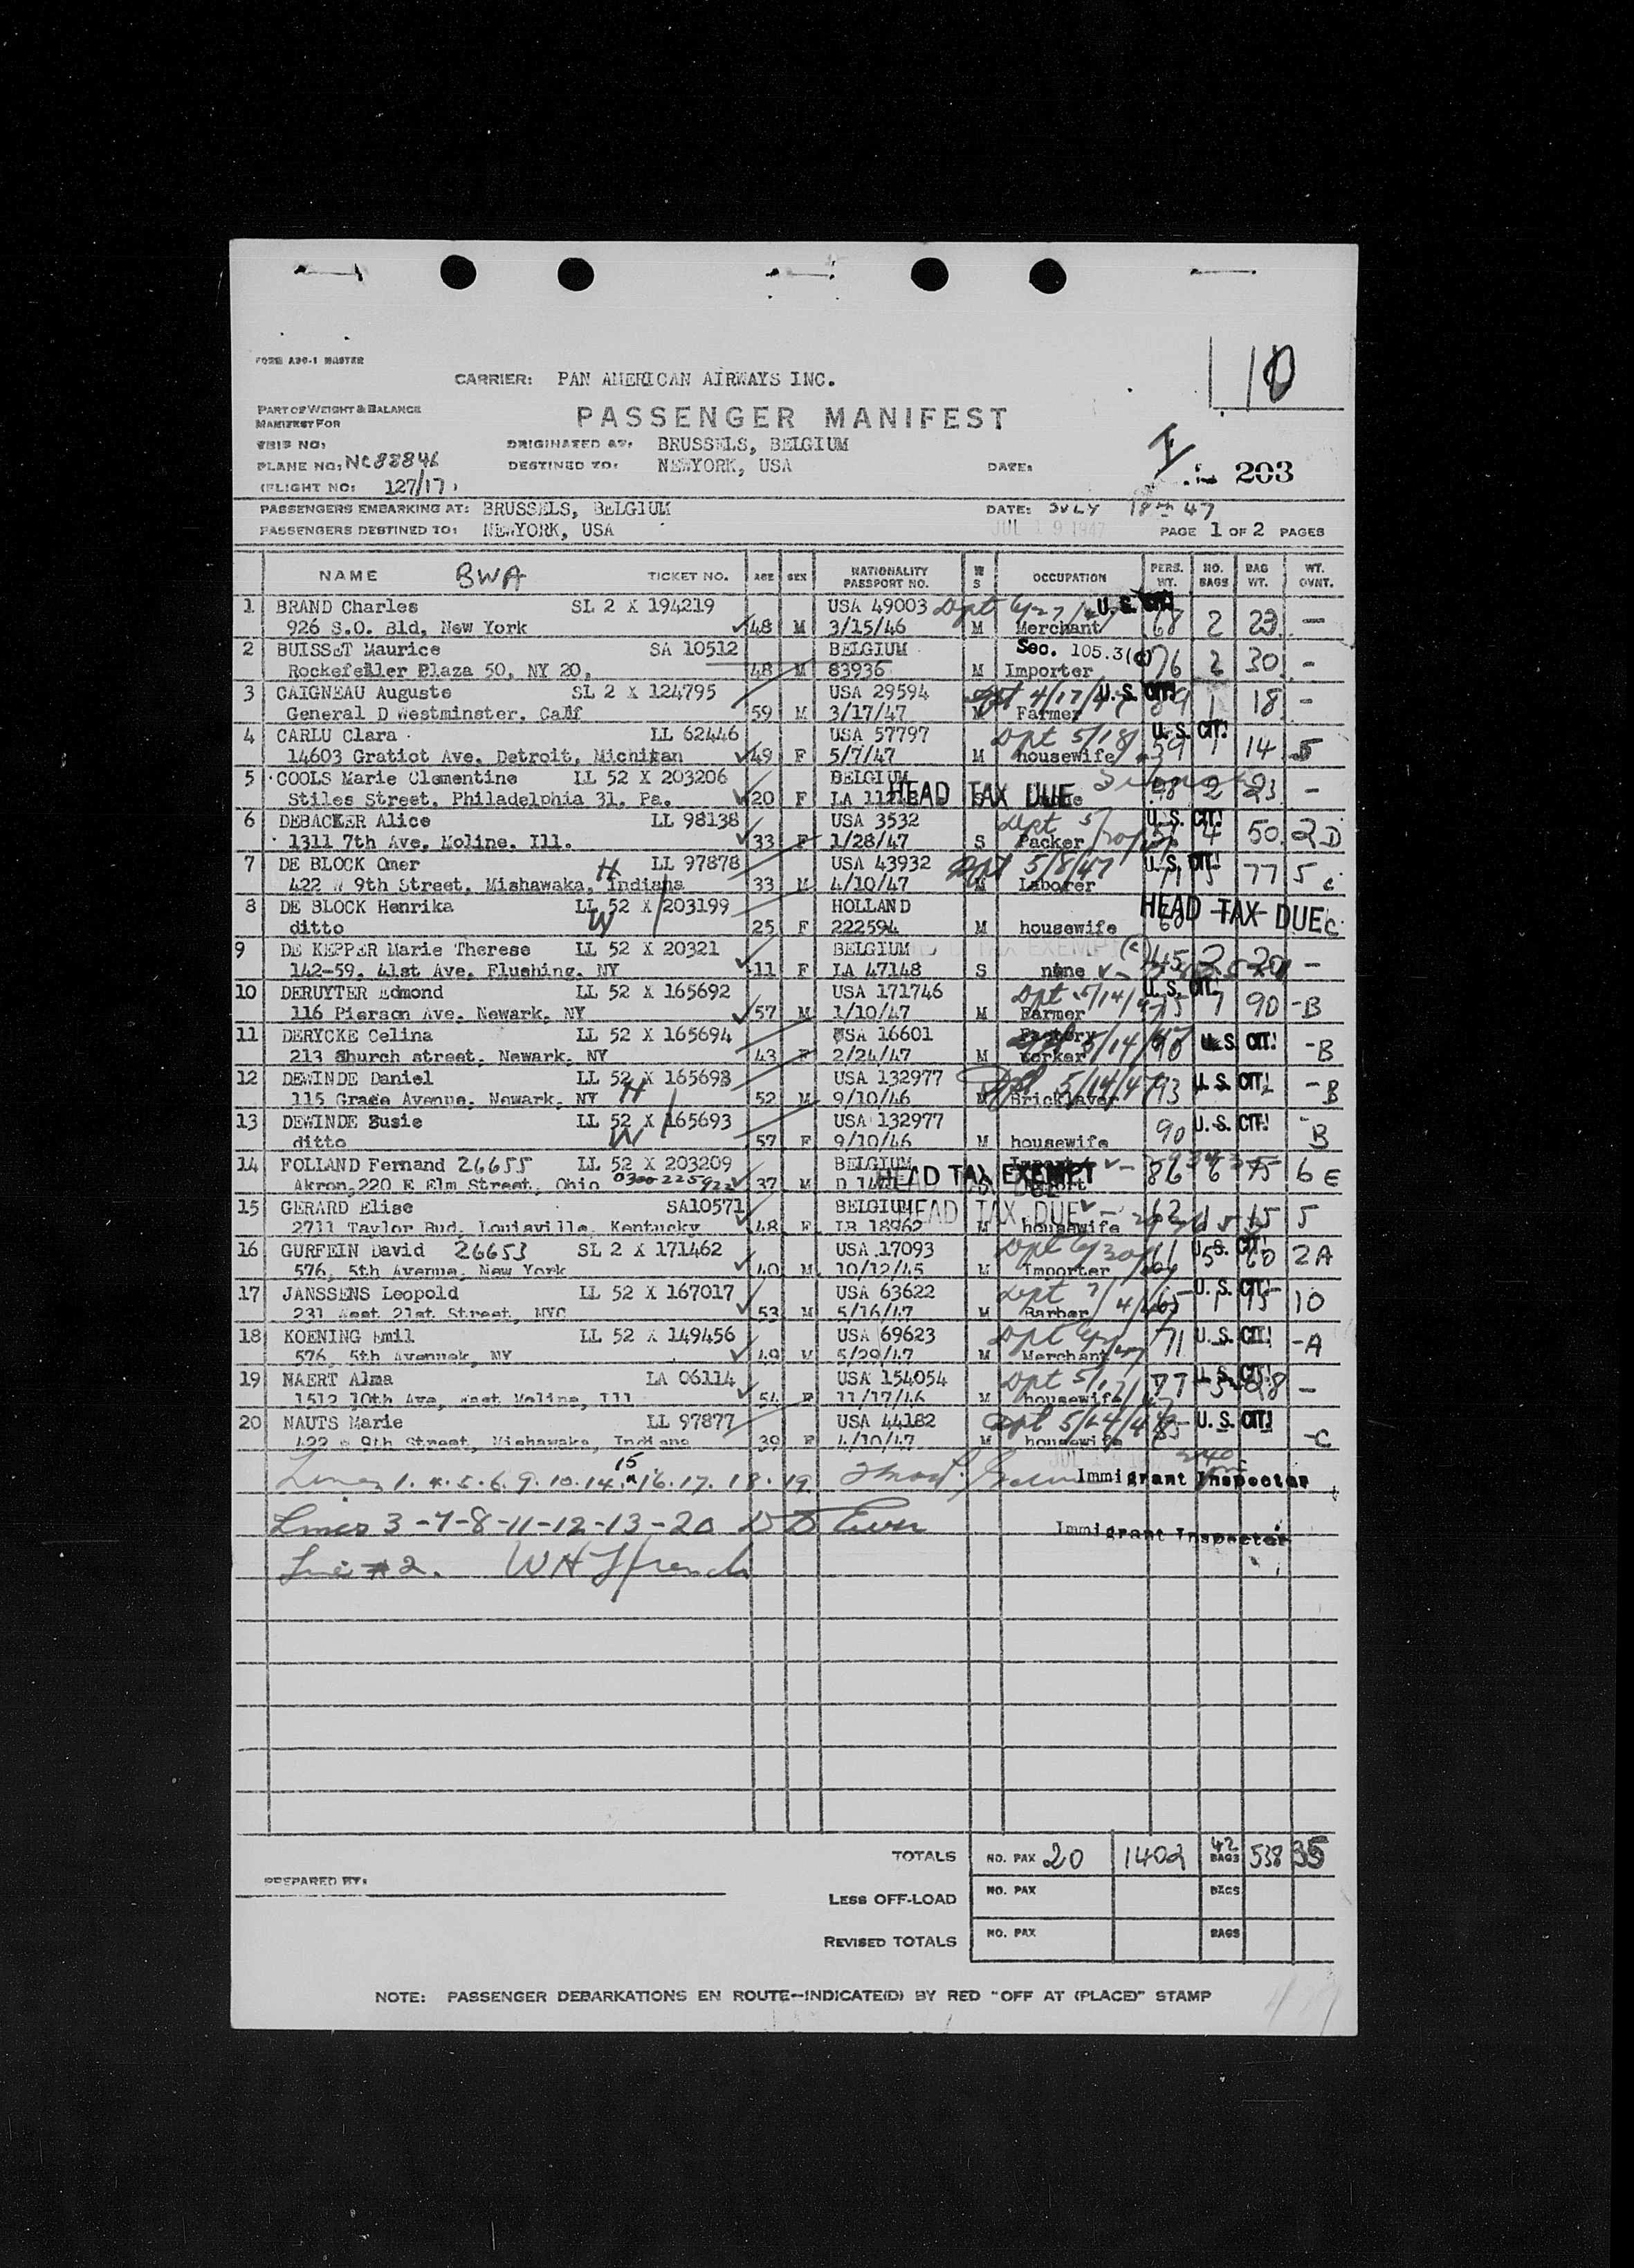 10
FORM A30-1 MASTER
CARRIER: PAN AMERICAN AIRWAYS INC.
PART OF WEIGHT & BALANCE
MANIFEST FOR
PASSENGER MANIFEST
TRIP NO:
ORIGINATED AT: BRUSSELS, BELGIUM
PLANE NO: NC88846
DESTINED TO: NEWYORK, USA
DATE:
203
(FLIGHT NO: 127/17)
PASSENGERS EMBARKING AT: BRUSSELS, BELGIUM
DATE: JULY 18th 47
JUL 19 1947
PASSENGERS DESTINED TO: NEWYORK, USA
PAGE 1 OF 2 PAGES
NAME BWA TICKET NO. AGE SEX NATIONALITY PASSPORT NO. M S OCCUPATION PERS. WT. NO. BAGS BAG WT. WT. OVNT.
1 BRAND Charles SL 2 X 194219 USA 49003 U.S. CIT.
926 S.O. Bld, New York 48 M 3/15/46 M Merchant 68 2 23 -
2 BUISSET Maurice SA 10512 BELGIUM Sec. 105.3(c)
Rockefeller Plaza 50, NY 20, 48 M 83936 M Importer 76 2 30 -
3 CAIGNEAU Auguste SL 2 X 124795 USA 29594 Dpt 4/17/47 U.S. CIT.
General D Westminster, Calif 59 M 3/17/47 M Farmer 1 18 -
4 CARLU Clara LL 62446 USA 57797 Dpt 5/18 U.S. CIT.
14603 Gratiot Ave, Detroit, Michigan 49 F 5/7/47 M housewife 59 1 14 5
5 COOLS Marie Clementine LL 52 X 203206 BELGIUM
Stiles Street, Philadelphia 31, Pa. 20 F HEAD TAX DUE 2 23 -
6 DEBACKER Alice LL 98138 USA 3532 Dpt 5/ U.S. CIT.
1311 7th Ave, Moline, Ill. 33 F 1/28/47 S Packer 4 50 2D
7 DE BLOCK Omer H LL 97878 USA 43932 Dpt 5/8/47 U.S. CIT.
422 W 9th Street, Mishawaka, Indiana 33 M 4/10/47 M Laborer 77 5 c
8 DE BLOCK Henrika LL 52 X 203199 HOLLAND HEAD TAX DUE
ditto W 25 F 222594 M housewife 60 C
9 DE KEPPER Marie Therese LL 52 X 20321 BELGIUM HEAD TAX EXEMPT (c)
142-59, 41st Ave, Flushing, NY 11 F LA 47148 S none 45 2 20 -
10 DERUYTER Edmond LL 52 X 165692 USA 171746 Dpt 5/14/47 U.S. CIT.
116 Pierson Ave, Newark, NY 57 M 1/10/47 M Farmer 75 1 90 -B
11 DERYCKE Celina LL 52 X 165694 USA 16601 Factory 5/14/47 U.S. CIT.
213 Shurch street, Newark, NY 43 F 2/24/47 M worker 90 -B
12 DEWINDE Daniel LL 52 X 165693 USA 132977 Dpt 5/14/47 U.S. CIT.
115 Grace Avenue, Newark, NY H 52 M 9/10/46 M Bricklayer 93 -B
13 DEWINDE Susie LL 52 X 165693 USA 132977 U.S. CIT.
ditto W 57 F 9/10/46 M housewife 90 -B
14 FOLLAND Fernand 26655 LL 52 X 203209 BELGIUM HEAD TAX EXEMPT
Akron, 220 E Elm Street, Ohio 0300-225922 37 M 86 6 75 6 E
15 GERARD Elise SA10571 BELGIUM HEAD TAX DUE
2711 Taylor Bud, Louisville, Kentucky 48 F LB 18962 M housewife 62 1 15 5
16 GURFEIN David 26653 SL 2 X 171462 USA 17093 Dpt 6/30 U.S. CIT.
576, 5th Avenue, New York 40 M 10/12/45 M Importer 66 5 60 2A
17 JANSSENS Leopold LL 52 X 167017 USA 63622 Dpt 7/ U.S. CIT.
231 West 21st Street, NYC 53 M 5/16/47 M Barber 65 1 10
18 KOENING Emil LL 52 X 149456 USA 69623 Dpt U.S. CIT.
576, 5th Avenuek, NY 49 M 5/29/47 M Merchant 71 -A
19 NAERT Alma LA 06114 USA 154054 Dpt 5/ U.S. CIT.
1512 10th Ave, East Moline, Ill 54 F 11/17/46 M housewife 77 -
20 NAUTS Marie LL 97877 USA 44182 Dpt U.S. CIT.
422 W 9th Street, Mishawaka, Indiana 39 F 4/10/47 M housewife 85 -C
Lines 1. 4. 5. 6. 9. 10. 14. 15 16. 17. 18. 19 Immigrant Inspector
Lines 3-7-8-11-12-13-20 Immigrant Inspector
Line #2. W H Ffrench
TOTALS NO. PAX 20 1402 42 BAGS 538 35
PREPARED BY:
LESS OFF-LOAD NO. PAX BAGS
REVISED TOTALS NO. PAX BAGS
NOTE: PASSENGER DEBARKATIONS EN ROUTE—INDICATE(D) BY RED "OFF AT (PLACE)" STAMP